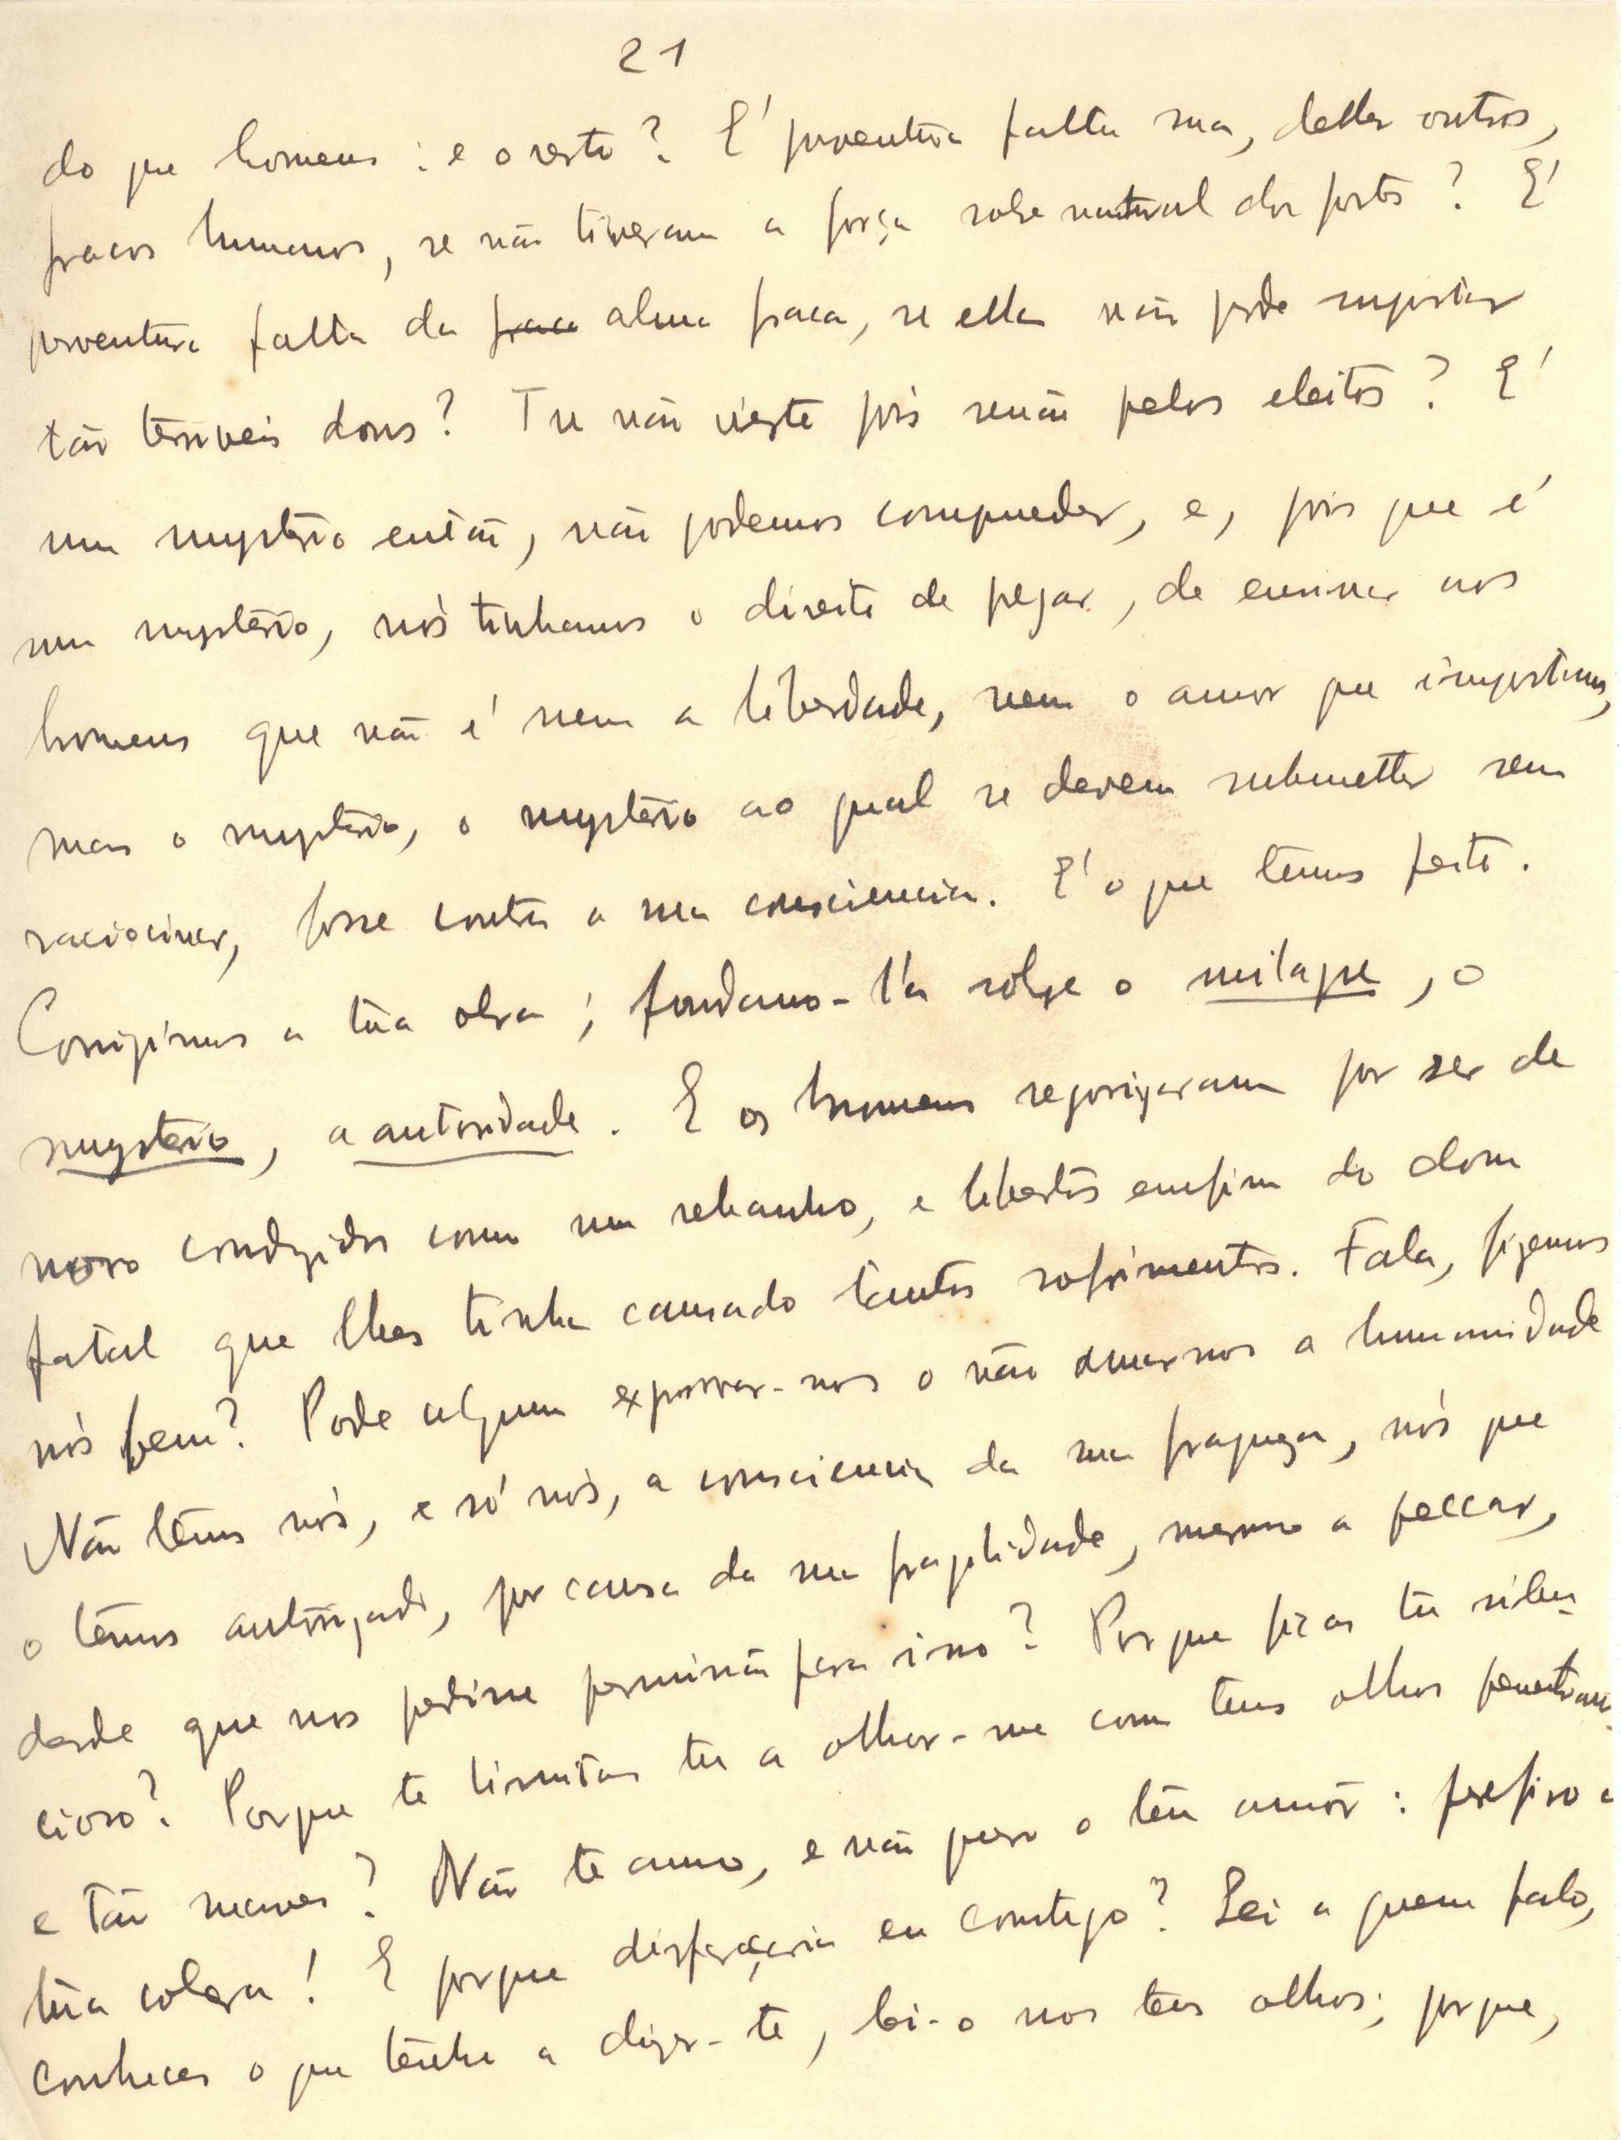 21
do que homens : e o resto? E' porventura falta sua, delles outros,
fracos humanos, se não tiveram a força sobrenatural dos fortes? E'
porventura falta da fraca alma fraca, se ella não pode suportar
tão terriveis dons? Tu não vieste pois senão pelos eleitos? E'
um mysterio então, não podemos comprender, e, pois que é
um mysterio, nós tinhamos o direito de pregar, de ensinar aos
homens que não é nem a liberdade, nem o amor que importam,
mas o mysterio, o mysterio ao qual se devem submetter sem
raciocinar, fosse contra a sua consciencia. E' o que temos feito.
Corrigimos a tua obra; fundamo-l'a sobre o milagre, o
mysterio, a autoridade. E os homens regorigaram por ser de
novo conduzidos como um rebanho, e libertos emfim do dom
fatal que lhes tinha causado tantos sofrimentos. Fala, fizemos
nós bem? Pode alguem exprovar-nos o não amarmos a humanidade
Não temos nós, e só nós, a consciencia da sua fraqueza, nós que
o temos autorizado, por causa da sua fragilidade, mesmo a peccar,
desde que nos pedisse permissão para isso? Porque ficas tu silen-
cioso? Porque te limitas tu a olhar-me com teus olhos penetrantes
e tão suaves? Não te amo, e não quero o teu amor: prefiro a
tua colera! E porque disfarçaria eu comtigo? Sei a quem falo,
conheces o que tenho a dizer-te, lei-o nos teus olhos; porque,